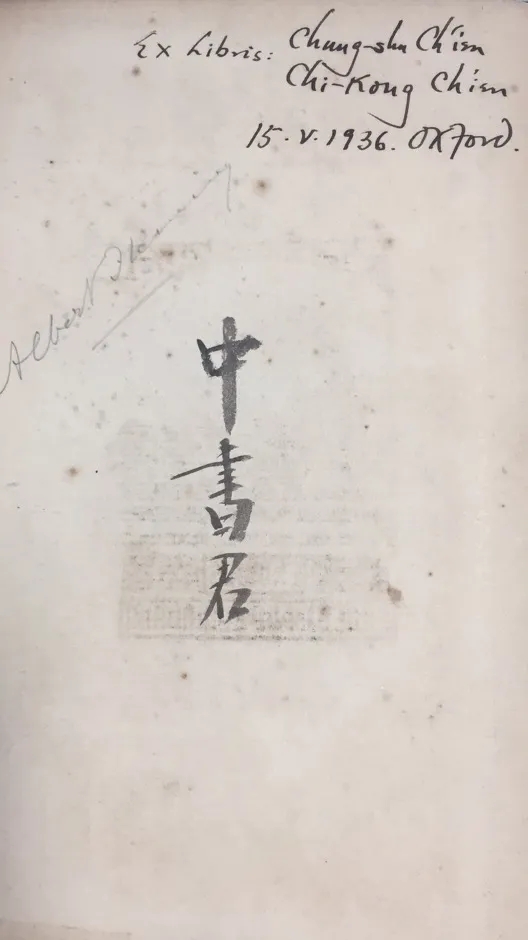 Ex Libris: Chung-shu Ch'ien
Chi-Kong Chien
15.V.1936. Oxford.
Albert
中書君